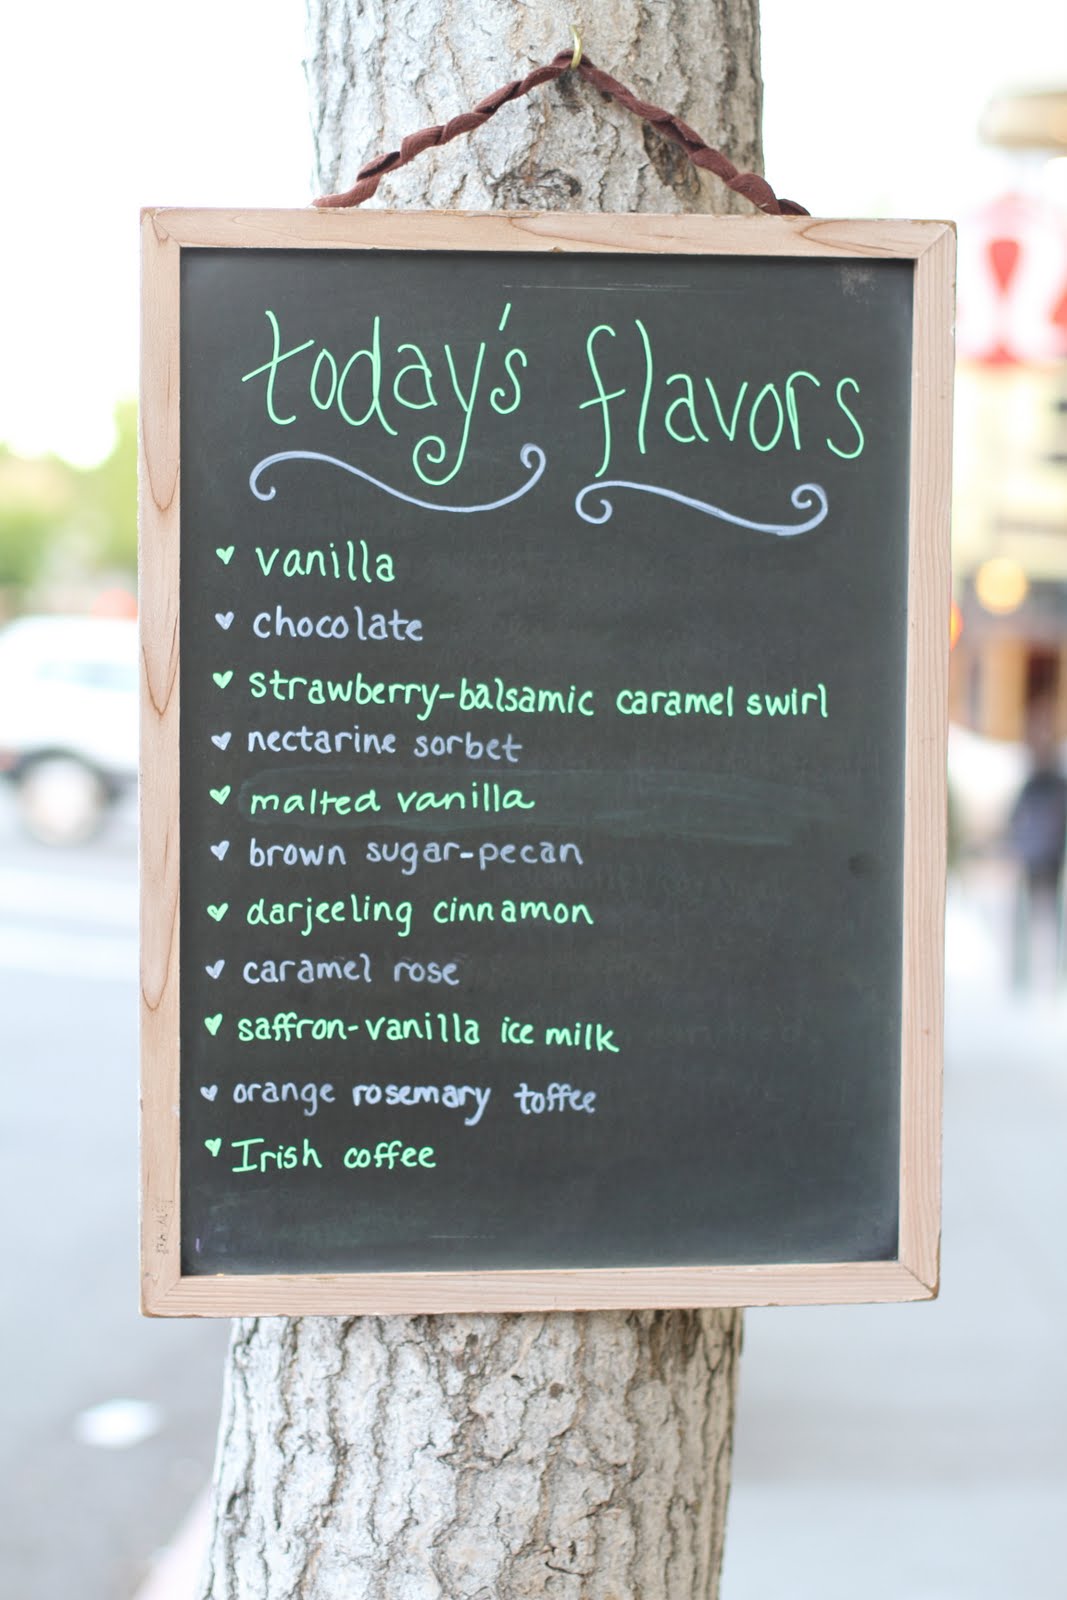 today's flavors
vanilla
chocolate
strawberry-balsamic caramel swirl
nectarine sorbet
malted vanilla
brown sugar-pecan
darjeeling cinnamon
caramel rose
saffron-vanilla ice milk
orange rosemary toffee
Irish coffee